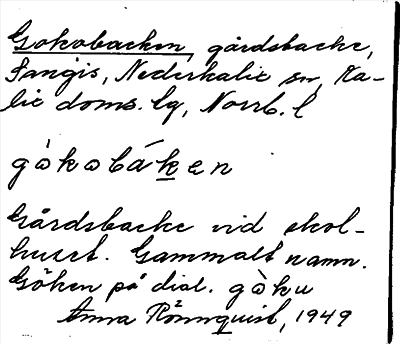 Gokobacken, gårdsbacke,
Sangis, Nederkalix sn, Ka-
lix doms. lg, Norrb. l
gòkobáken
Gårdsbacke vid skol-
huset. Gammalt namn.
Göken på dial. gòku
Anna Rönnquist, 1949